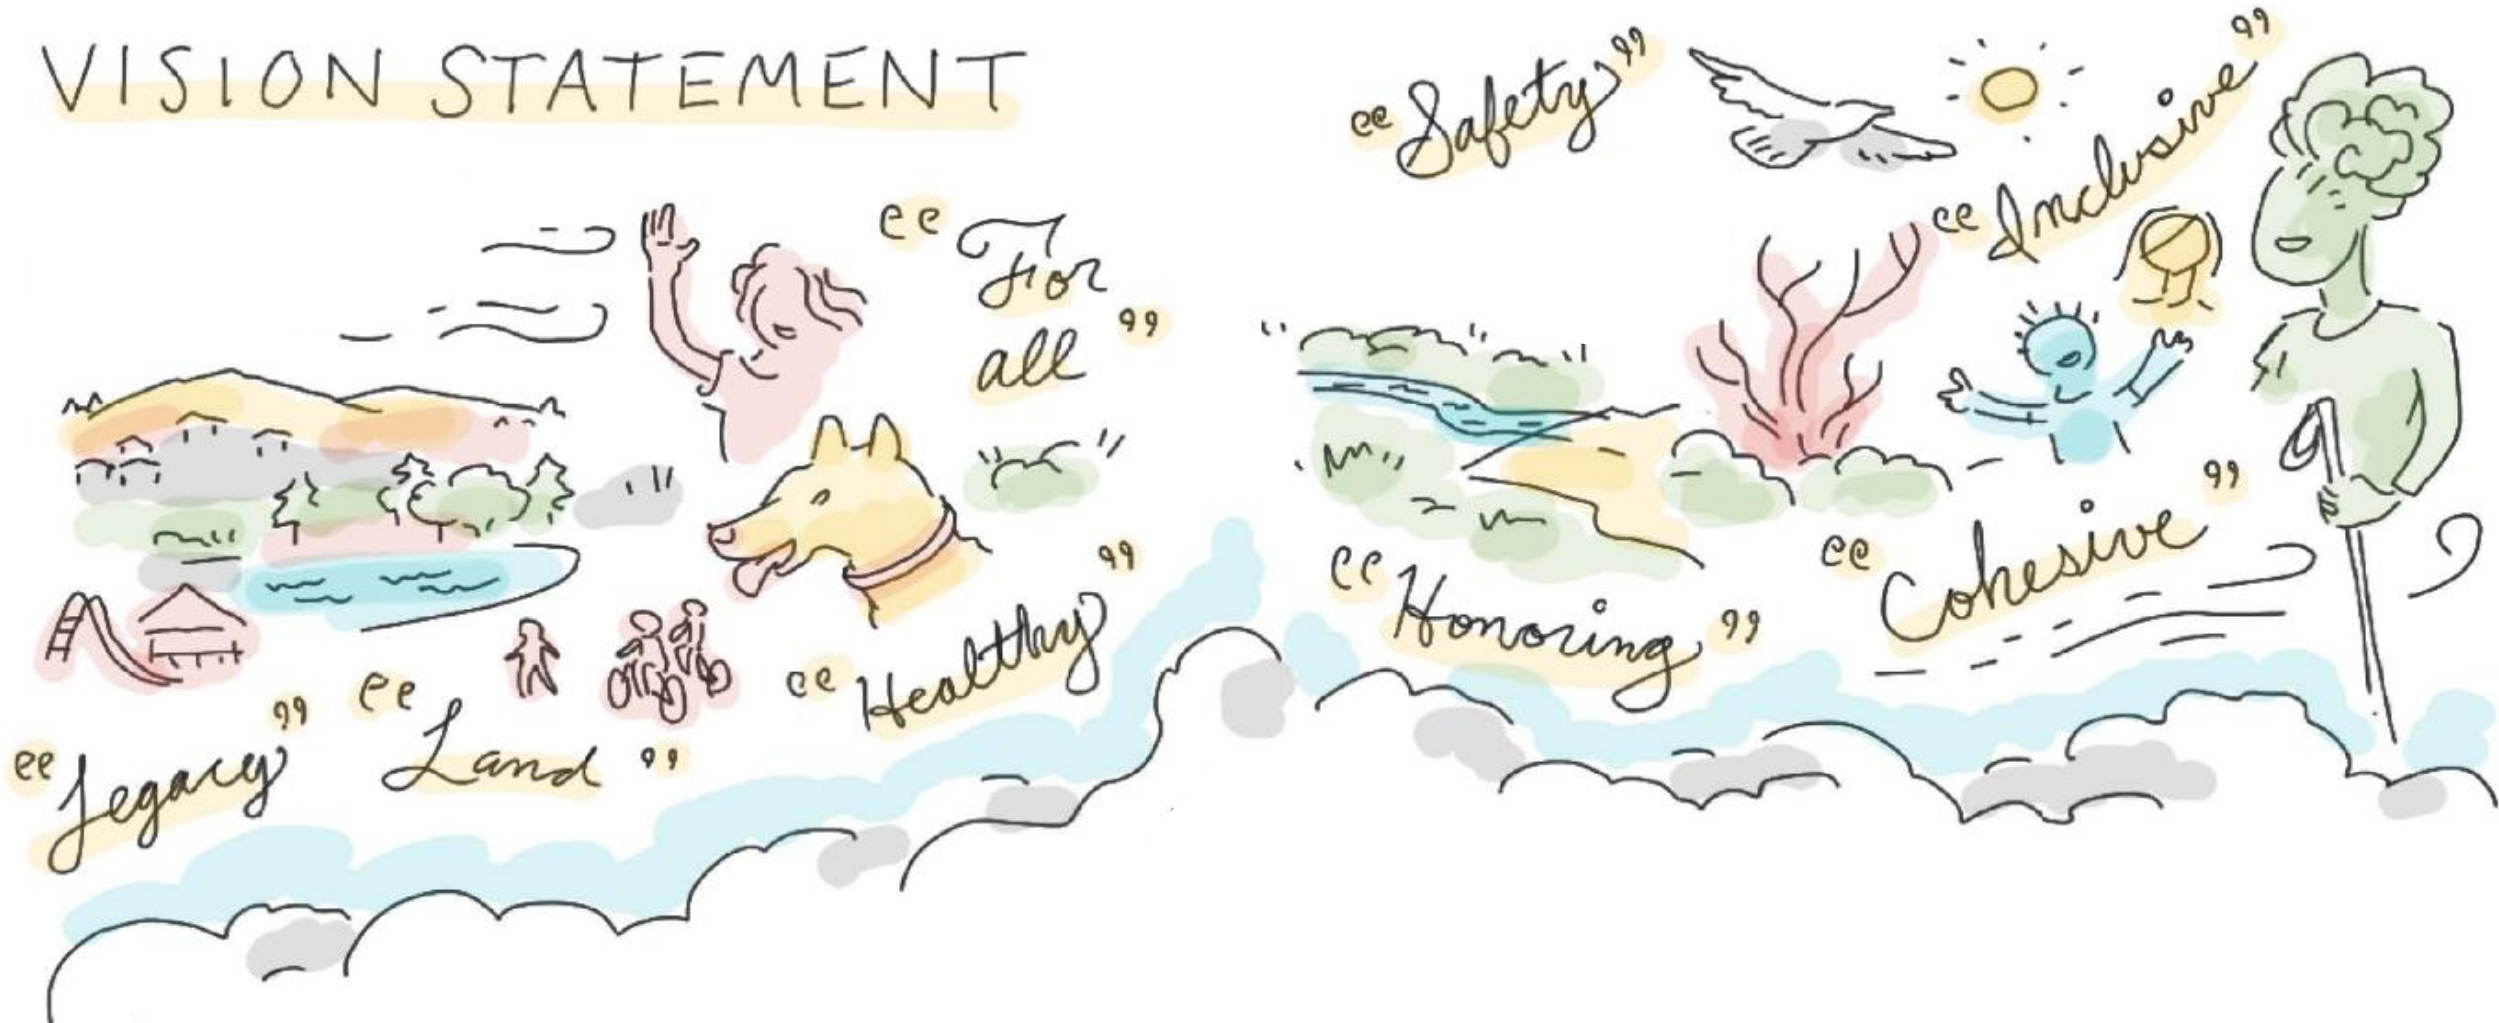 VISION STATEMENT
“Safety”
“Inclusive”
“For
all”
“Healthy”
“Honoring”
“Cohesive”
“Legacy”
“Land”